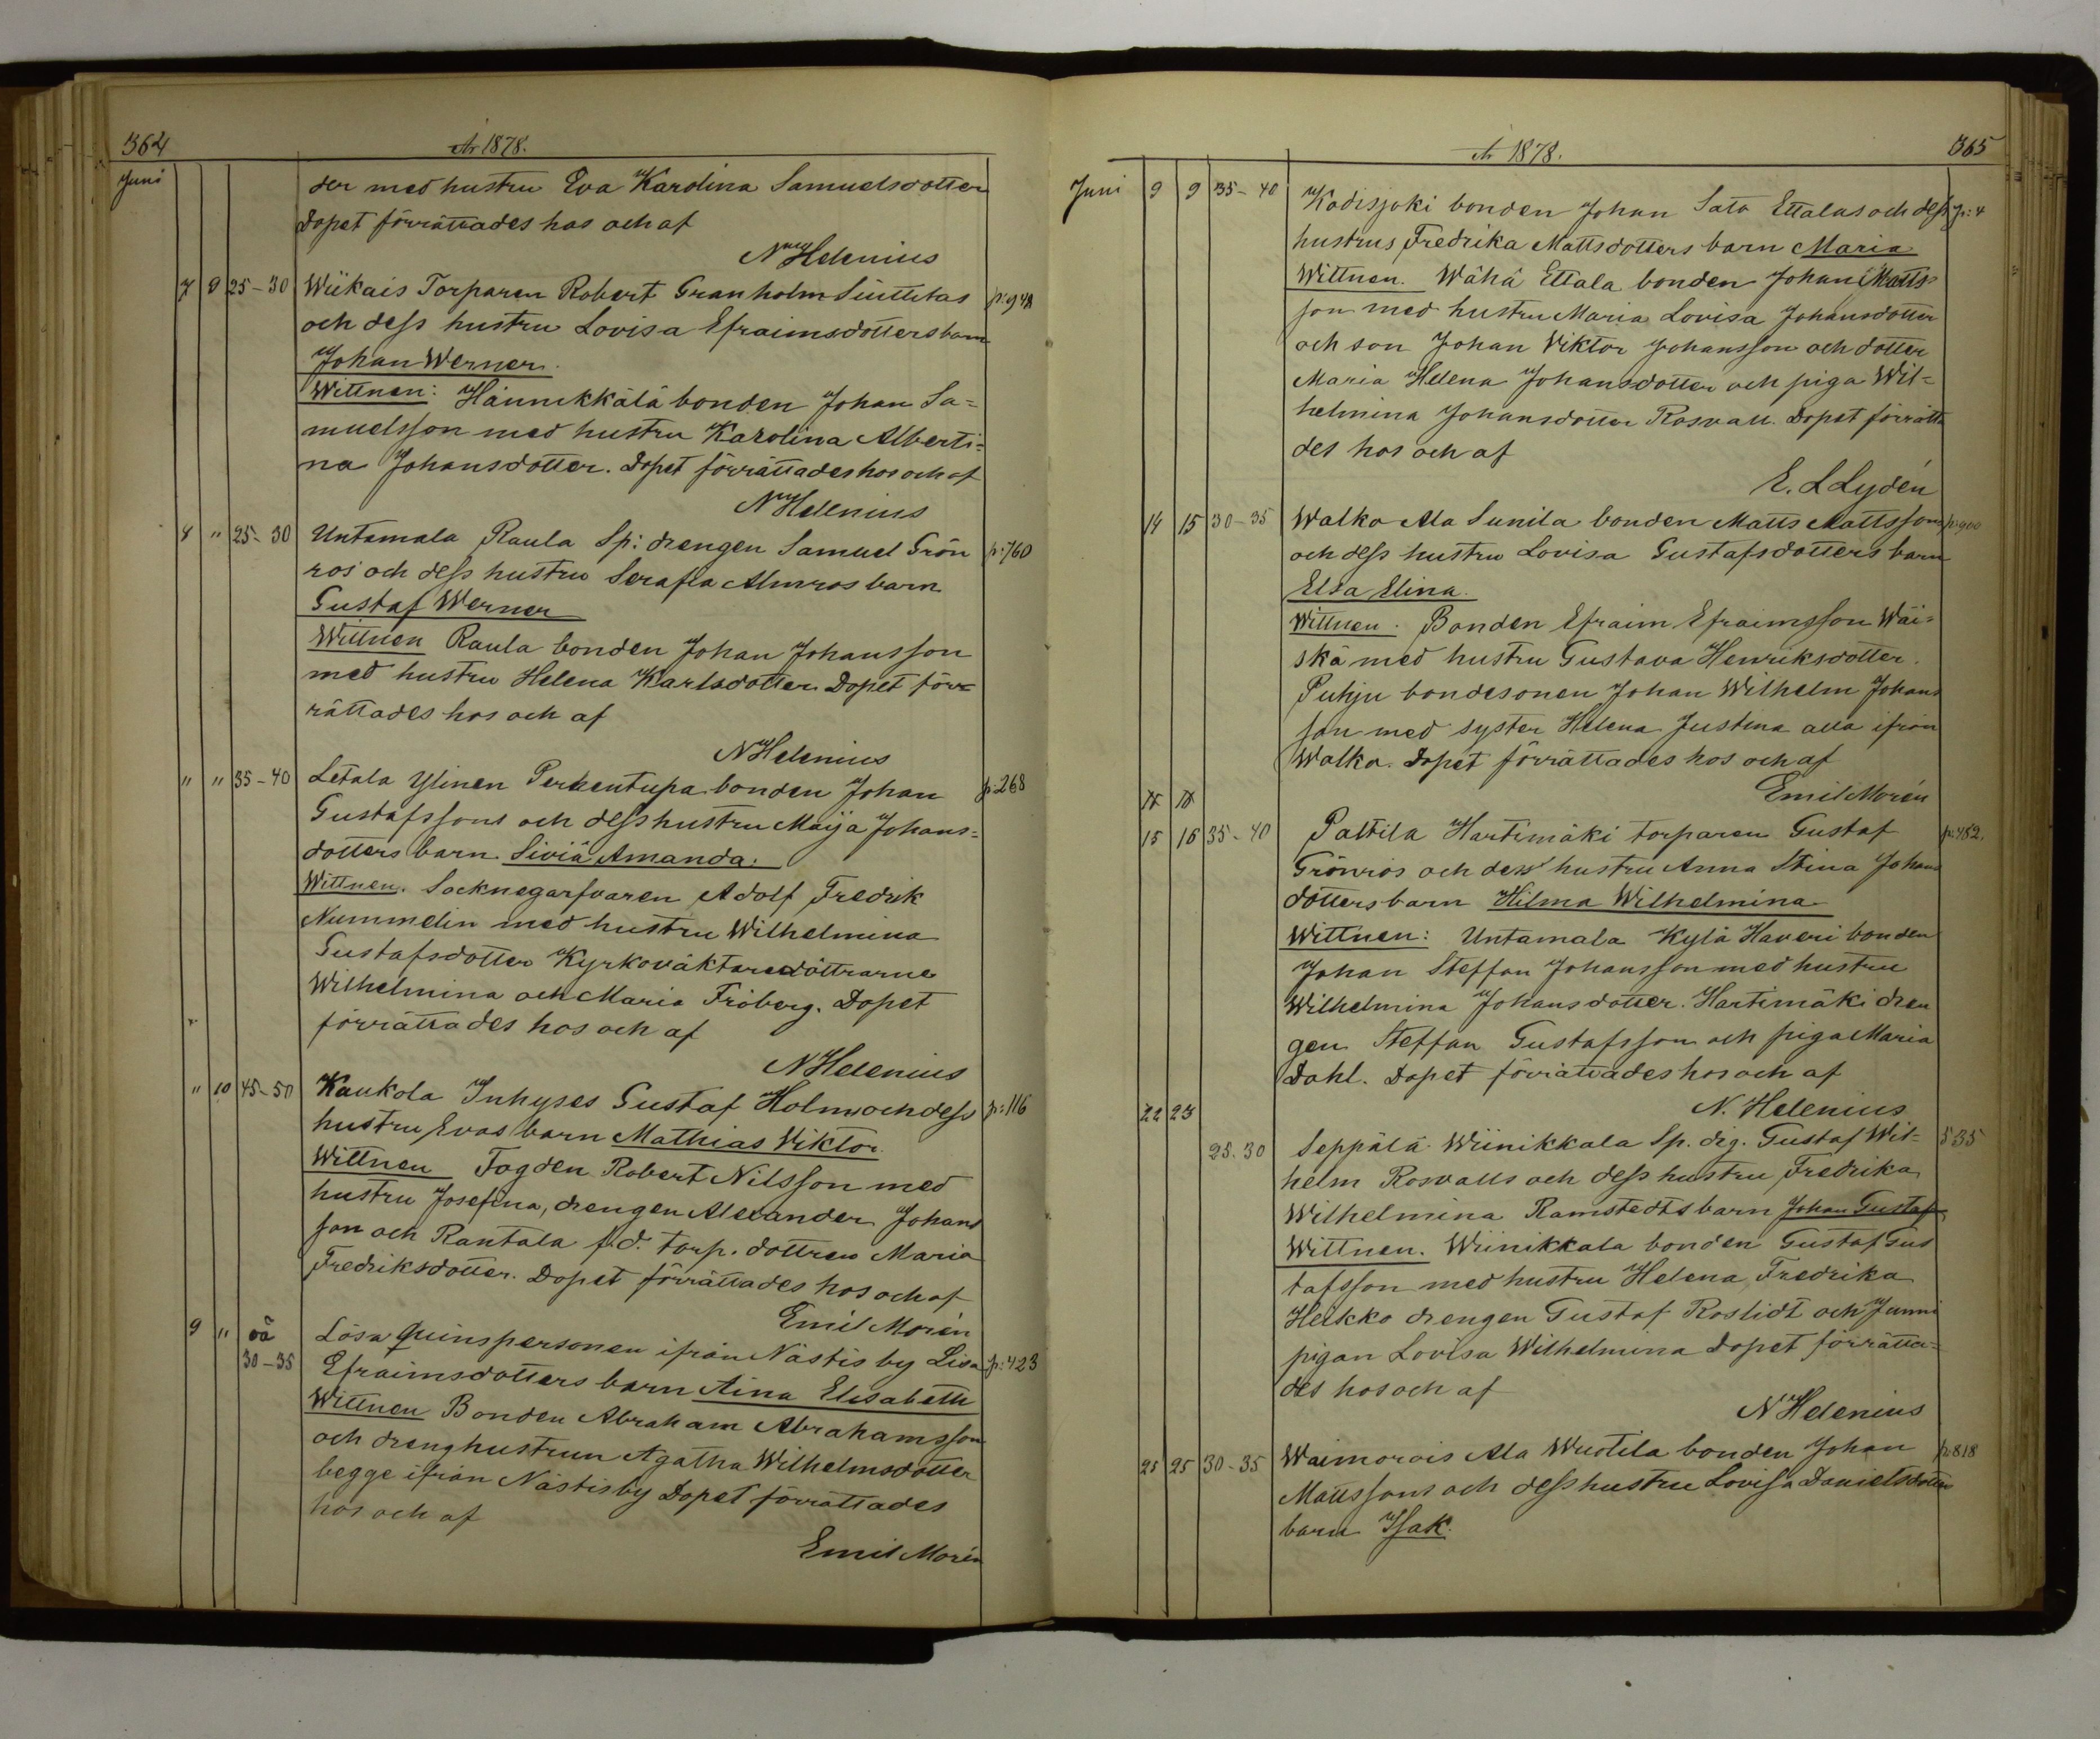 364
År 1878.
Juni
der med hustru Eva Karolina Samuelsdotter
Dopet förrättades hos och af
N Helenius
7 9 25-30 Wiikais Torparen Robert Granholm Siuttilas p: 948
och dess hustru Lovisa Efraimsdotters barn
Johan Werner.
Wittnen: Hännikkälä bonden Johan Sa=
muelsson med hustru Karolina Alberti=
na Johansdotter. Dopet förrättades hos och af
N Helenius
8 " 25-30 Untamala Raula Sp: drengen Samuel Grön p: 760
ros och dess hustru Serafia Almros barn
Gustaf Werner
Wittnen Raula bonden Johan Johansson
med hustru Helena Karlsdotter Dopet förr=
rättades hos och af
N Helenius
" " 35-40 Letala Ylinen Perkentupa bonden Johan p: 268
Gustafssons och dess hustru Maija Johans=
dotters barn. Siviä Amanda.
Wittnen. Socknegarfvaren Adolf Fredrik
Nummelin med hustru Wilhelmina
Gustafsdotter Kyrkoväktaredöttrarne
Wilhelmina och Maria Fröberg. Dopet
förrättades hos och af
N Helenius
" 10 45-50 Kaukola Inhyses Gustaf Holms och dess p: 116
hustru Evas barn Mathias Viktor.
Wittnen Fogden Robert Nilsson med
hustru Josefina, drengen Alexander Johans
son och Rantala f.d. torp. dottren Maria
Fredriksdotter. Dopet förrättades hos och af
Emil Morén
9 " oä
30-35 Lösa qvinspersonen ifrån Nästis by Lisa p: 423
Efraimsdotters barn Aina Elisabeth
Wittnen Bonden Abraham Abrahamsson
och drenghustrun Agatha Wilhelmsdotter
begge ifrån Nästis by Dopet förrättades
hos och af
Emil Morén
År 1878.
365
Juni 9 9 35-40 Kodisjoki bonden Johan Sato Ettalas och dess p: 4
hustrus Fredrika Mattsdotters barn Maria
Wittnen. Wähä Ettala bonden Johan Matts
son med hustru Maria Lovisa Johansdotter
och son Johan Viktor Johansson och dotter
Maria Helena Johansdotter och piga Wil=
helmina Johansdotter Rosvall. Dopet förrätta
des hos och af
E. L Lydén
14 15 30-35 Walko Ala Sunila bonden Matts Mattssons p: 900
och dess hustru Lovisa Gustafsdotters barn
Elsa Elina.
Wittnen. Bonden Efraim Efraimsson Wäi=
skä med hustru Gustava Henriksdotter.
Puhju bondesonen Johan Wilhelm Johans
son med syster Helena Justina alla ifrån
Walko. Dopet förrättades hos och af
Emil Morén
15 16 35-40 Palttila Hartimäki torparen Gustaf p: 482.
Grönros och dess hustru Anna Stina Johans
dotters barn Hilma Wilhelmina
Wittnen: Untamala Kylä Haveri bonden
Johan Steffan Johansson med hustru
Wilhelmina Johansdotter. Hartimäki dren
gen Steffan Gustafsson och piga Maria
Dahl. Dopet förrättades hos och af
N. Helenius
22 23
25.30 Seppälä Wiinikkala Sp. drg. Gustaf Wil= 535
helm Rosvalls och dess hustru Fredrika
Wilhelmina Ramstedts barn Johan Gustaf
Wittnen. Wiinikkala bonden Gustaf Gus
tafsson med hustru Helena Fredrika
Heikko drengen Gustaf Roslidt och Junni
pigan Lovisa Wilhelmina Dopet förrätta=
des hos och af
N Helenius
25 25 30-35 Waimorois Ala Wuotila bonden Johan p: 818
Mattssons och dess hustru Lovisa Danielsdotters
barn Isak.